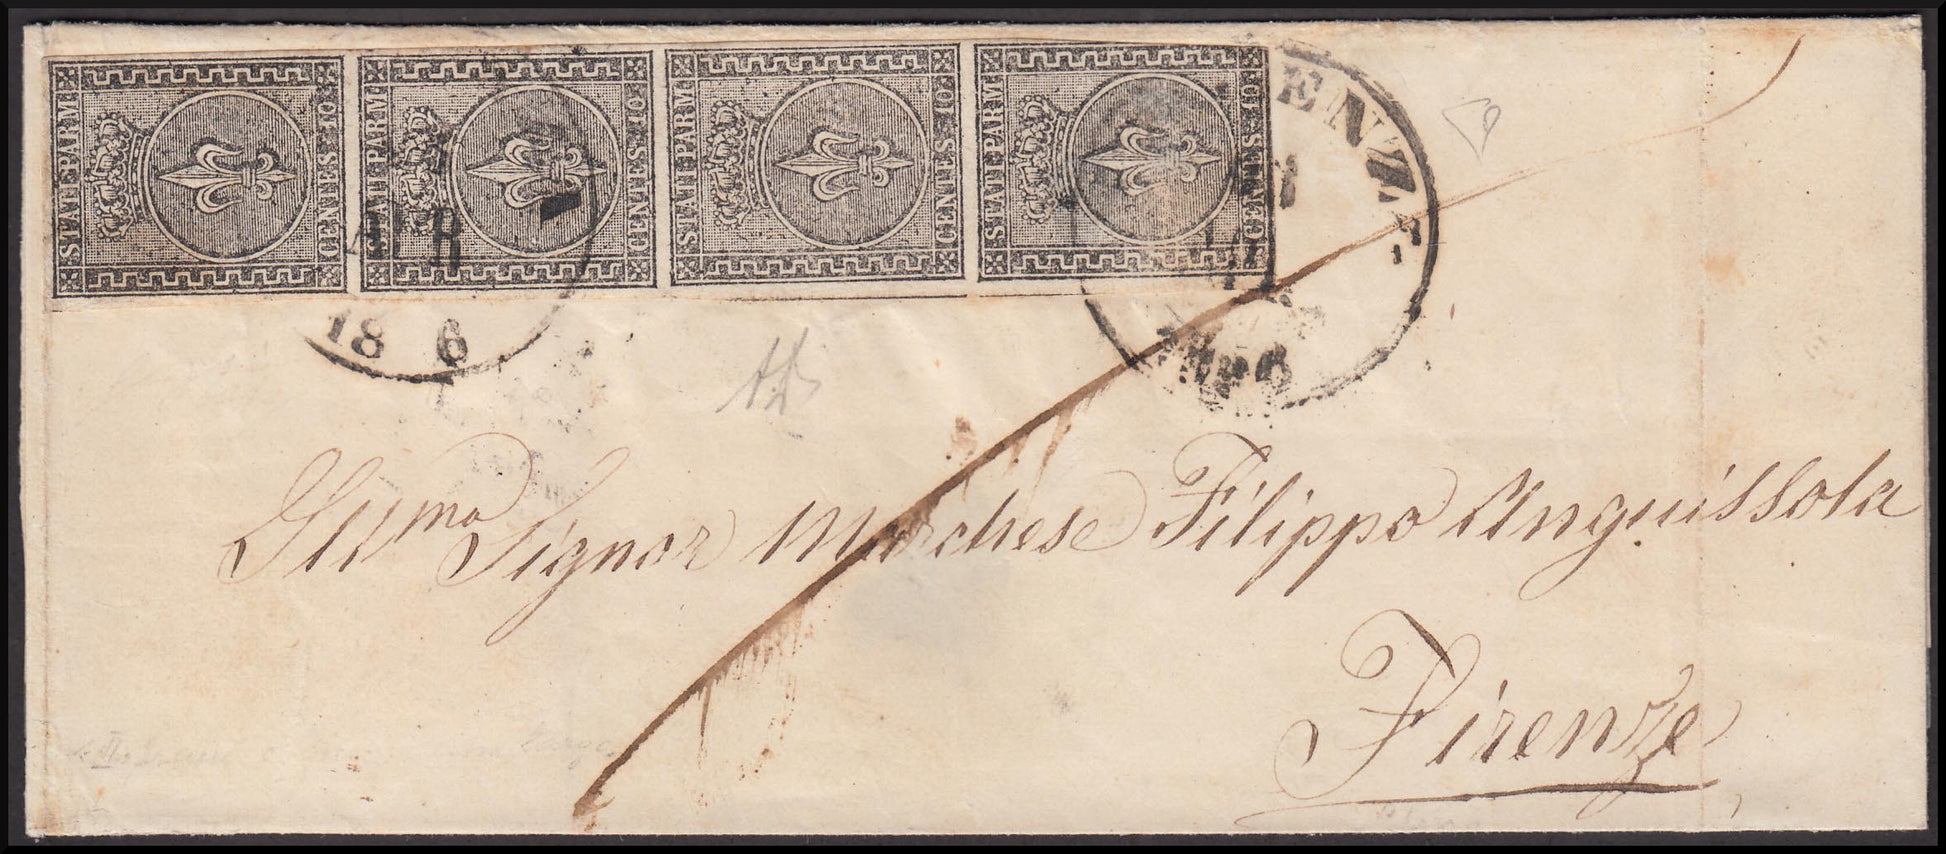 STATI PARM CENTES. 10
STATI PARM CENTES. 10
STATI PARM CENTES. 10
STATI PARM CENTES. 10
ENZA
18 6
Ill.mo Signor Marchese Filippo Anguissola
Firenze